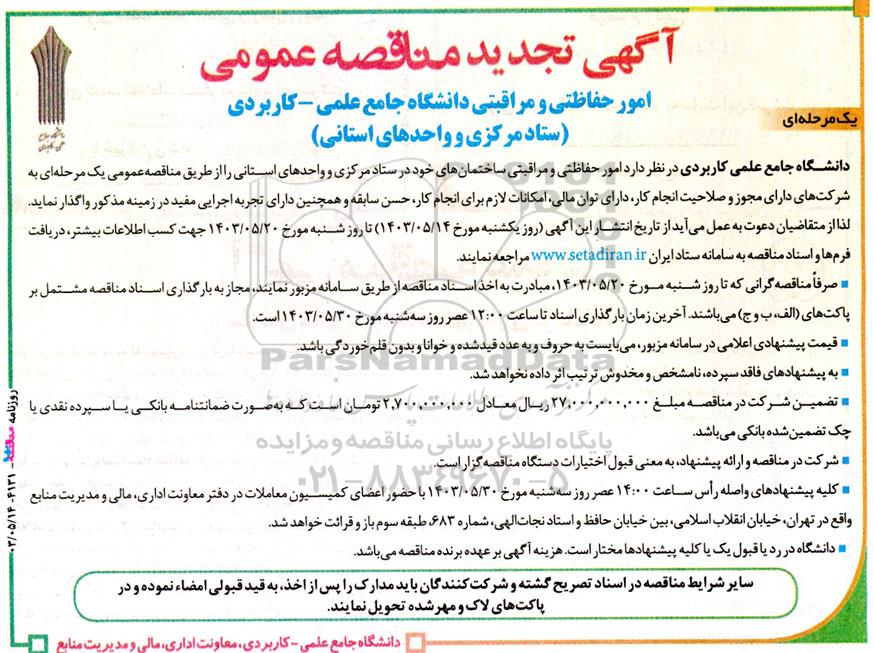 آگهی تجدید مناقصه عمومی
امور حفاظتی و مراقبتی دانشگاه جامع علمی - کاربردی
(ستاد مرکزی و واحدهای استانی)
یک مرحله‌ای
دانشگاه جامع علمی کاربردی در نظر دارد امور حفاظتی و مراقبتی ساختمان‌های خود در ستاد مرکزی و واحدهای استانی را از طریق مناقصه عمومی یک مرحله‌ای به
شرکت‌های دارای مجوز و صلاحیت انجام کار، دارای توان مالی، امکانات لازم برای انجام کار، حسن سابقه و همچنین دارای تجربه اجرایی مفید در زمینه مذکور واگذار نماید.
لذا از متقاضیان دعوت به عمل می‌آید از تاریخ انتشار این آگهی (روز یکشنبه مورخ ۱۴۰۳/۰۵/۱۴) تا روز شنبه مورخ ۱۴۰۳/۰۵/۲۰ جهت کسب اطلاعات بیشتر، دریافت
فرم‌ها و اسناد مناقصه به سامانه ستاد ایران www.setadiran.ir مراجعه نمایند.
▪ صرفاً مناقصه‌گرانی که تا روز شنبه مورخ ۱۴۰۳/۰۵/۲۰، مبادرت به اخذ اسناد مناقصه از طریق سامانه مزبور نمایند، مجاز به بارگذاری اسناد مناقصه مشتمل بر
پاکت‌های (الف، ب و ج) می‌باشند. آخرین زمان بارگذاری اسناد تا ساعت ۱۲:۰۰ عصر روز سه‌شنبه مورخ ۱۴۰۳/۰۵/۳۰ است.
▪ قیمت پیشنهادی اعلامی در سامانه مزبور، می‌بایست به حروف و به عدد قید شده و خوانا و بدون قلم خوردگی باشد.
ParsNamadData
▪ به پیشنهادهای فاقد سپرده، نامشخص و مخدوش ترتیب اثر داده نخواهد شد.
▪ تضمین شرکت در مناقصه مبلغ ۲۷,۰۰۰,۰۰۰,۰۰۰ ریال معادل ۲,۷۰۰,۰۰۰,۰۰۰ تومان است که به صورت ضمانتنامه بانکی یا سپرده نقدی یا
چک تضمین شده بانکی می‌باشد.
پایگاه اطلاع رسانی مناقصه و مزایده
▪ شرکت در مناقصه و ارائه پیشنهاد، به معنی قبول اختیارات دستگاه مناقصه‌گزار است.
۰۲۱-۸۸۳۴۹۶۷۰-۵
▪ کلیه پیشنهادهای واصله رأس ساعت ۱۴:۰۰ عصر روز سه‌شنبه مورخ ۱۴۰۳/۰۵/۳۰ با حضور اعضای کمیسیون معاملات در دفتر معاونت اداری، مالی و مدیریت منابع
واقع در تهران، خیابان انقلاب اسلامی، بین خیابان حافظ و استاد نجات‌الهی، شماره ۶۸۳، طبقه سوم باز و قرائت خواهد شد.
▪ دانشگاه در رد یا قبول یک یا کلیه پیشنهادها مختار است. هزینه آگهی بر عهده برنده مناقصه می‌باشد.
سایر شرایط مناقصه در اسناد تصریح گشته و شرکت‌کنندگان باید مدارک را پس از اخذ، به قید قبولی امضاء نموده و در
پاکت‌های لاک و مهر شده تحویل نمایند.
دانشگاه جامع علمی - کاربردی، معاونت اداری، مالی و مدیریت منابع
روزنامه مناقصه - ۴۱۳۱ - ۰۳/۰۵/۱۴